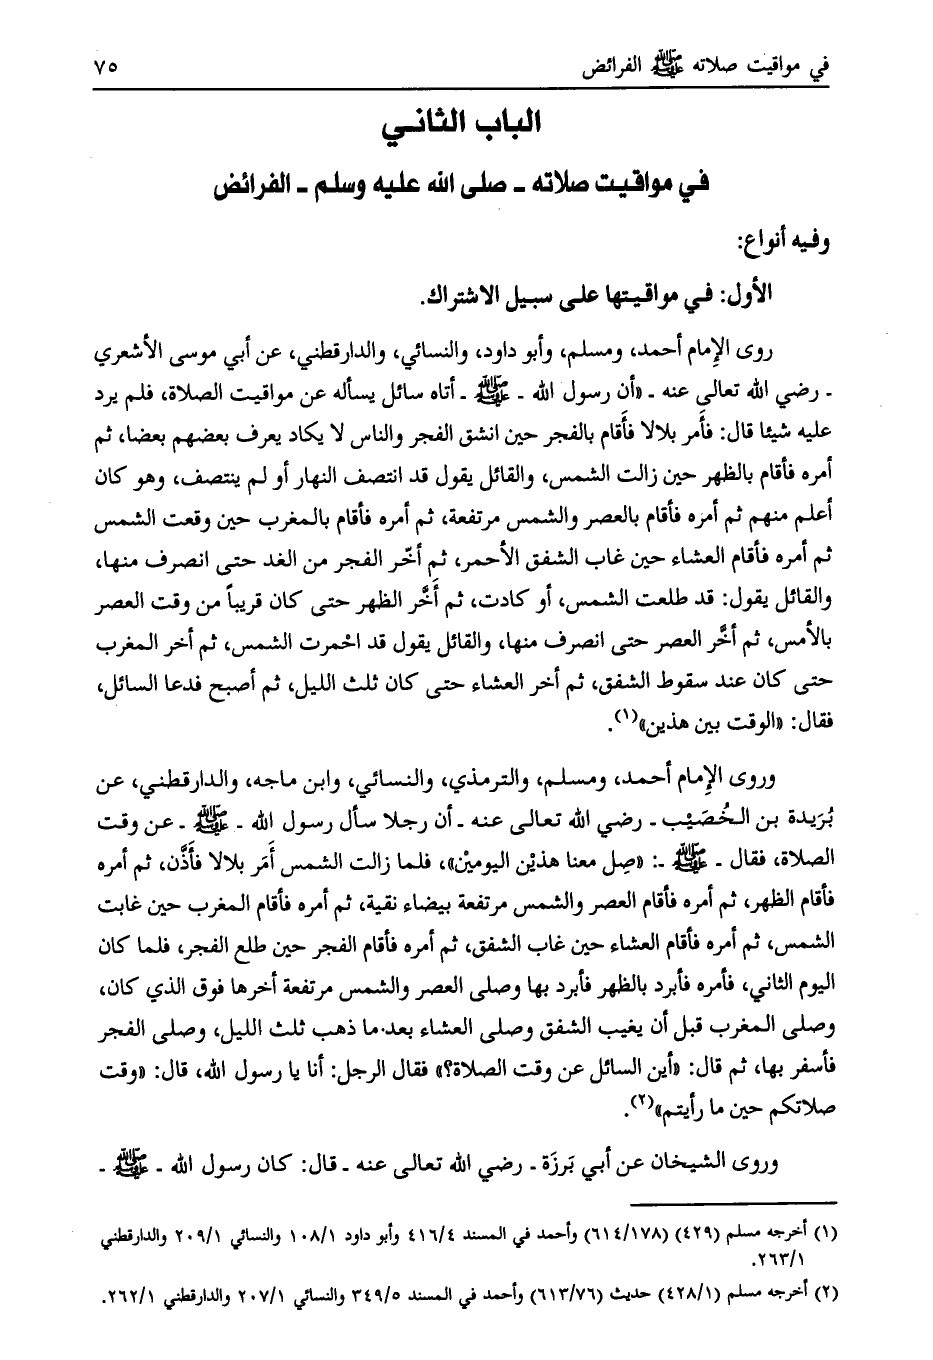 في مواقيت صلاته ﷺ الفرائض ٧٥
الباب الثاني
في مواقيت صلاته ـ صلى الله عليه وسلم ـ الفرائض
وفيه أنواع:
الأول: في مواقيتها على سبيل الاشتراك.
روى الإمام أحمد، ومسلم، وأبو داود، والنسائي، والدارقطني، عن أبي موسى الأشعري
ـ رضي الله تعالى عنه ـ «أن رسول الله ـ ﷺ ـ أتاه سائل يسأله عن مواقيت الصلاة، فلم يرد
عليه شيئا قال: فأَمر بلالا فأَقام بالفجر حين انشق الفجر والناس لا يكاد يعرف بعضهم بعضا، ثم
أمره فأقام بالظهر حين زالت الشمس، والقائل يقول قد انتصف النهار أو لم ينتصف، وهو كان
أعلم منهم ثم أمره فأقام بالعصر والشمس مرتفعة، ثم أمره فأقام بالمغرب حين وقعت الشمس
ثم أمره فأقام العشاء حين غاب الشفق الأحمر، ثم أخّر الفجر من الغد حتى انصرف منها،
والقائل يقول: قد طلعت الشمس، أو كادت، ثم أَخَّر الظهر حتى كان قريباً من وقت العصر
بالأمس، ثم أخَّر العصر حتى انصرف منها، والقائل يقول قد احْمرت الشمس، ثم أخر المغرب
حتى كان عند سقوط الشفق، ثم أخر العشاء حتى كان ثلث الليل، ثم أصبح فدعا السائل،
فقال: «الوقت بين هذين»(١).
وروى الإمام أحمد، ومسلم، والترمذي، والنسائي، وابن ماجه، والدارقطني، عن
بُرَيدة بن الخُصَيْب ـ رضي الله تعالى عنه ـ أن رجلا سأل رسول الله ـ ﷺ ـ عن وقت
الصلاة، فقال ـ ﷺ ـ: «صِل معنا هذيْن اليوميْن»، فلما زالت الشمس أَمَر بلالا فأَذَّن، ثم أمره
فأقام الظهر، ثم أمره فأقام العصر والشمس مرتفعة بيضاء نقية، ثم أمره فأقام المغرب حين غابت
الشمس، ثم أمره فأقام العشاء حين غاب الشفق، ثم أمره فأقام الفجر حين طلع الفجر، فلما كان
اليوم الثاني، فأمره فأبرد بالظهر فأبرد بها وصلى العصر والشمس مرتفعة أخرها فوق الذي كان،
وصلى المغرب قبل أن يغيب الشفق وصلى العشاء بعد ما ذهب ثلث الليل، وصلى الفجر
فأسفر بها، ثم قال: «أين السائل عن وقت الصلاة؟» فقال الرجل: أنا يا رسول الله، قال: «وقت
صلاتكم حين ما رأيتم»(٢).
وروى الشيخان عن أبي بَرزَة ـ رضي الله تعالى عنه ـ قال: كان رسول الله ـ ﷺ ـ
(١) أخرجه مسلم (٤٢٩) (٦١٤/١٧٨) وأحمد في المسند ٤١٦/٤ وأبو داود ١٠٨/١ والنسائي ٢٠٩/١ والدارقطني
٢٦٣/١.
(٢) أخرجه مسلم (٤٢٨/١) حديث (٦١٣/٧٦) وأحمد في المسند ٣٤٩/٥ والنسائي ٢٠٧/١ والدارقطني ٢٦٢/١.